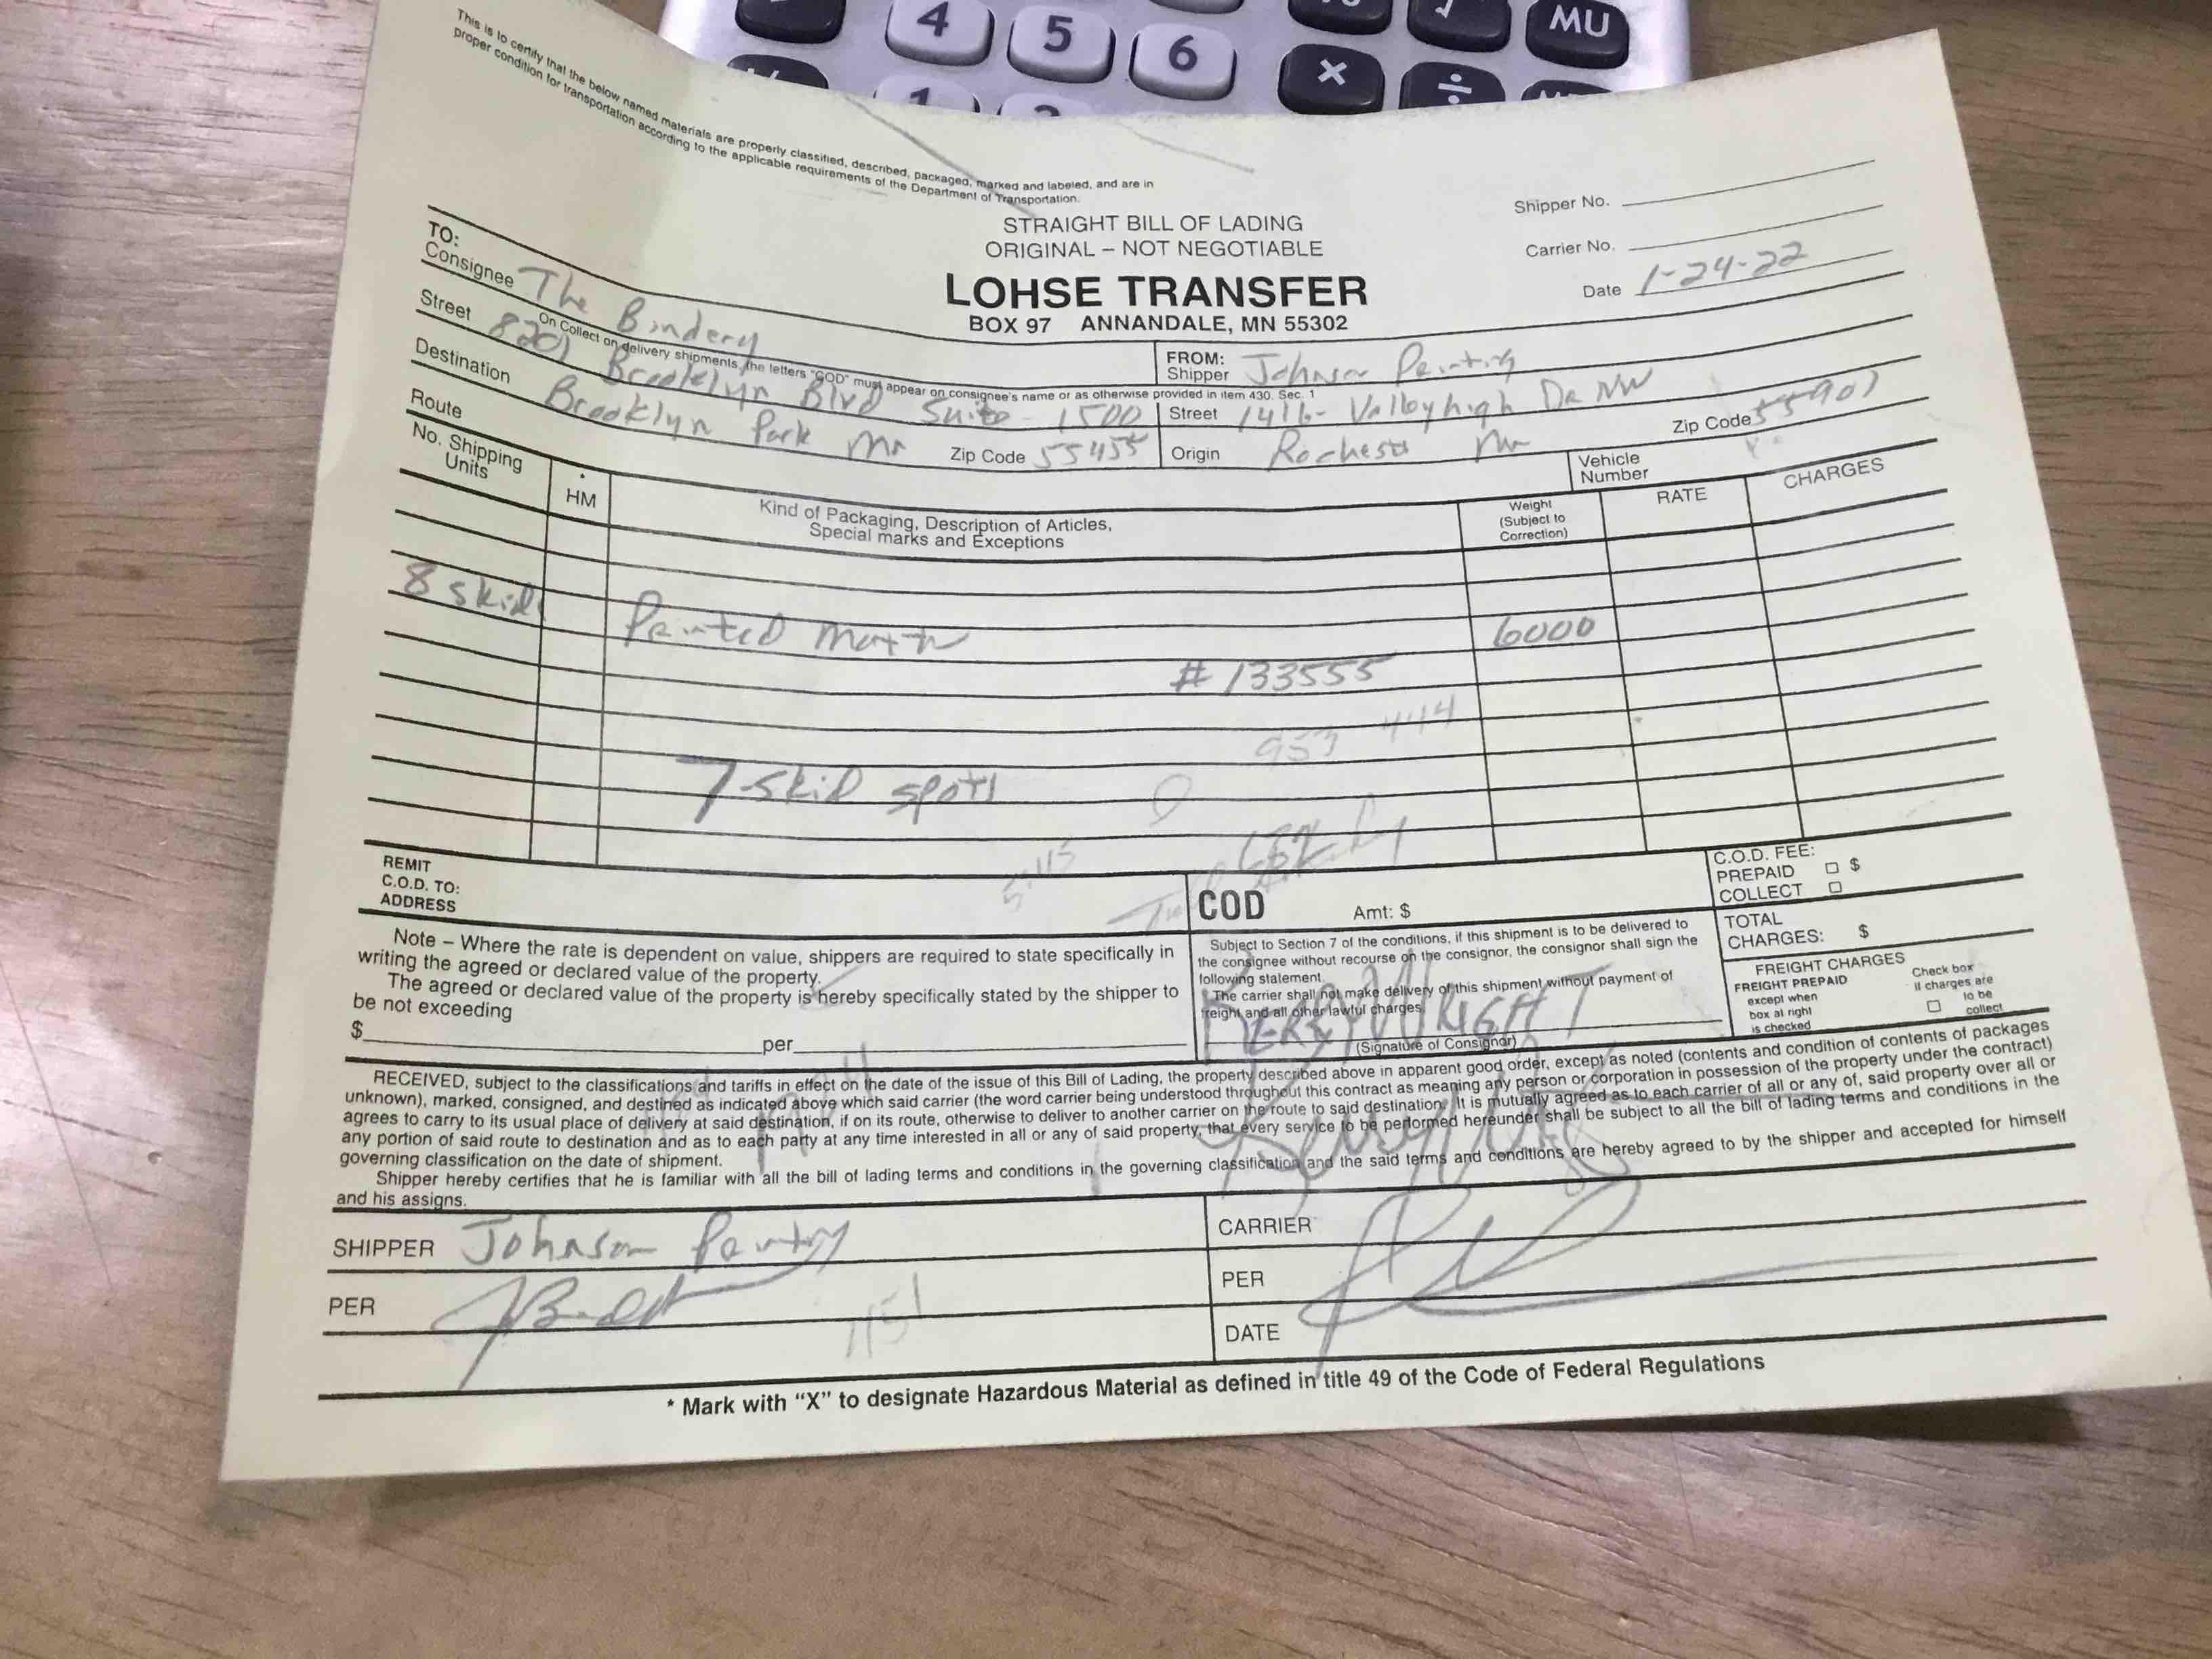 4 5 6 × ÷ MU
This is to certify that the below named materials are properly classified, described, packaged, marked and labeled, and are in
proper condition for transportation according to the applicable requirements of the Department of Transportation.
STRAIGHT BILL OF LADING
ORIGINAL – NOT NEGOTIABLE
LOHSE TRANSFER
BOX 97 ANNANDALE, MN 55302
Shipper No.
Carrier No.
Date 1-24-22
TO:
Consignee The Bindery
On Collect on delivery shipments, the letters "COD" must appear on consignee's name or as otherwise provided in item 430. Sec. 1
Street 8201 Brooklyn Blvd Suite - 1500
Destination Brooklyn Park Mn Zip Code 55455
Route
FROM:
Shipper Johnson Printing
Street 1416- Valleyhigh Dr NW
Origin Rochester Mn Zip Code 55901
Vehicle
Number
No. Shipping
Units
*
HM
Kind of Packaging, Description of Articles,
Special marks and Exceptions
Weight
(Subject to
Correction)
RATE
CHARGES
8 skids Printed Matter 6000
# 133555
953 444
7 skid spots
REMIT
C.O.D. TO:
ADDRESS
COD Amt: $
C.O.D. FEE:
PREPAID $
COLLECT
Note – Where the rate is dependent on value, shippers are required to state specifically in
writing the agreed or declared value of the property.
The agreed or declared value of the property is hereby specifically stated by the shipper to
be not exceeding
$ per
Subject to Section 7 of the conditions, if this shipment is to be delivered to
the consignee without recourse on the consignor, the consignor shall sign the
following statement.
The carrier shall not make delivery of this shipment without payment of
freight and all other lawful charges.
KERRY WRIGHT
(Signature of Consignor)
TOTAL
CHARGES: $
FREIGHT CHARGES
FREIGHT PREPAID
except when
box at right
is checked
Check box
if charges are
to be
collect
RECEIVED, subject to the classifications and tariffs in effect on the date of the issue of this Bill of Lading, the property described above in apparent good order, except as noted (contents and condition of contents of packages
unknown), marked, consigned, and destined as indicated above which said carrier (the word carrier being understood throughout this contract as meaning any person or corporation in possession of the property under the contract)
agrees to carry to its usual place of delivery at said destination, if on its route, otherwise to deliver to another carrier on the route to said destination. It is mutually agreed as to each carrier of all or any of, said property over all or
any portion of said route to destination and as to each party at any time interested in all or any of said property, that every service to be performed hereunder shall be subject to all the bill of lading terms and conditions in the
governing classification on the date of shipment.
Shipper hereby certifies that he is familiar with all the bill of lading terms and conditions in the governing classification and the said terms and conditions are hereby agreed to by the shipper and accepted for himself
and his assigns.
SHIPPER Johnson Printing
PER
CARRIER
PER
DATE
* Mark with "X" to designate Hazardous Material as defined in title 49 of the Code of Federal Regulations